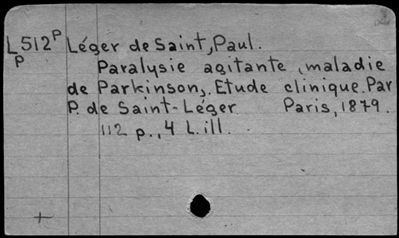 L512P Léger de Saint, Paul.
P
Paralysie agitante, maladie
de Parkinson,. Etude clinique. Par
P. de Saint-Léger. Paris, 1879.
112 p., 4 L. ill.